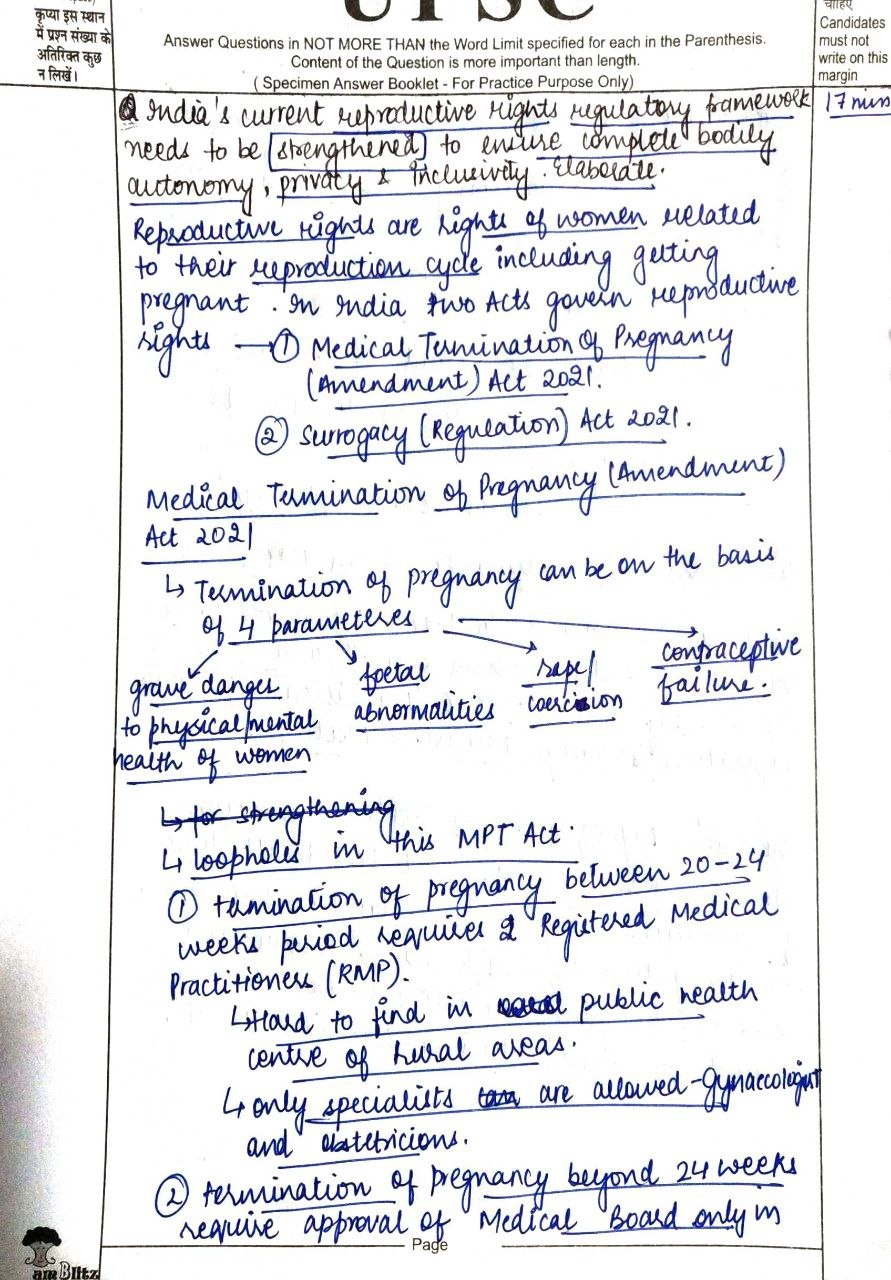 UPSC
कृप्या इस स्थान
में प्रश्न संख्या के
अतिरिक्त कुछ
न लिखें।
Answer Questions in NOT MORE THAN the Word Limit specified for each in the Parenthesis.
Content of the Question is more important than length.
( Specimen Answer Booklet - For Practice Purpose Only)
चाहिए
Candidates
must not
write on this
margin
17 mins
Q India's current reproductive rights regulatory framework
needs to be strengthened to ensure complete bodily
autonomy, privacy & inclusivity. Elaborate.
Reproductive rights are rights of women related
to their reproduction cycle including getting
pregnant. In India two Acts govern reproductive
rights → ① Medical Termination Of Pregnancy
(Amendment) Act 2021.
② Surrogacy (Regulation) Act 2021.
Medical Termination of Pregnancy (Amendment)
Act 2021
↳ Termination of pregnancy can be on the basis
of 4 parameteres
grave danger
to physical/mental
health of women
foetal
abnormalities
rape/
coercision
contraceptive
failure.
↳ for strengthening
↳ loopholes in this MPT Act.
① termination of pregnancy between 20-24
weeks period requires 2 Registered Medical
Practitioners (RMP).
↳ Hard to find in public health
centre of rural areas.
↳ only specialists are allowed - gynaecologist
and obstetricions.
② termination of pregnancy beyond 24 weeks
require approval of Medical Board only in
Page
amBlitz